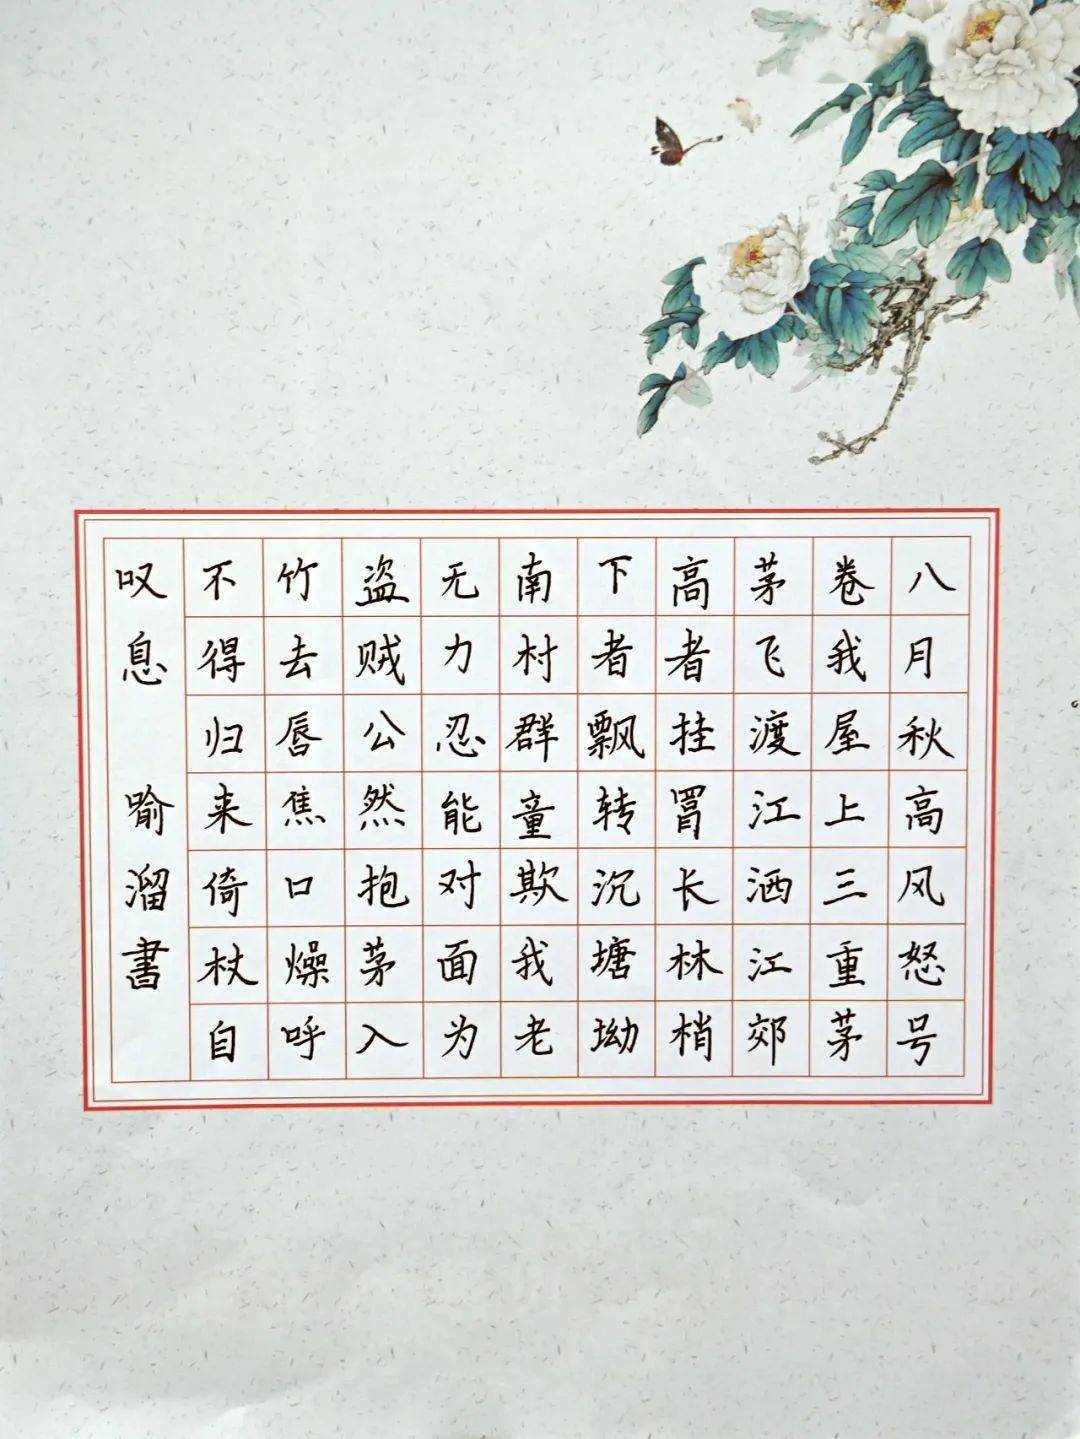 八月秋高风怒号
卷我屋上三重茅
茅飞渡江洒江郊
高者挂罥长林梢
下者飘转沉塘坳
南村群童欺我老
无力忍能对面为
盗贼公然抱茅入
竹去唇焦口燥呼
不得归来倚杖自
叹息 喻溜書